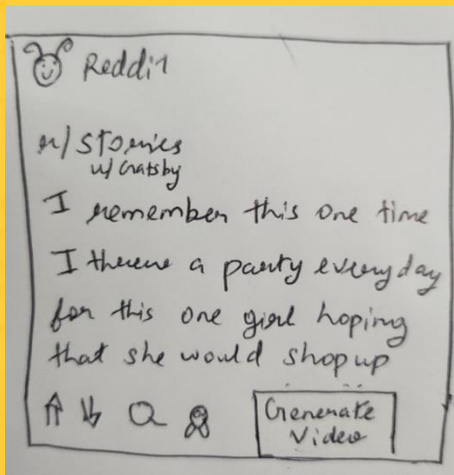 Reddit
r/stories
u/Gatsby
I remember this one time
I threw a party everyday
for this one girl hoping
that she would shop up
Generate
Video